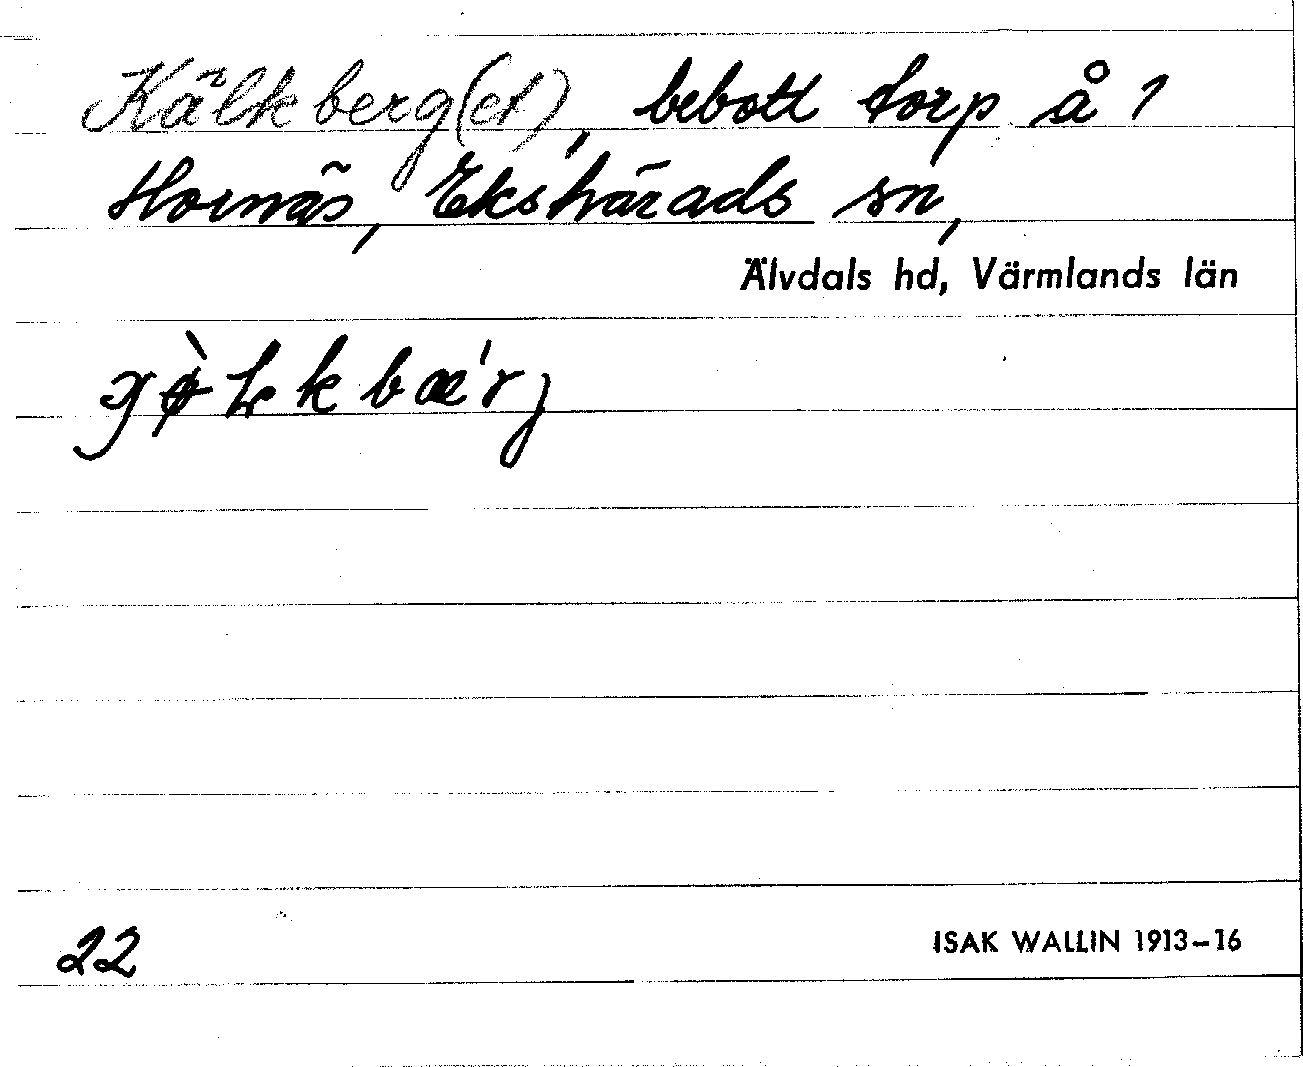 Kälkberg(et), bebott torp å 1
Hornäs, Ekshärads sn,
Älvdals hd, Värmlands län
22
ISAK WALLIN 1913-16